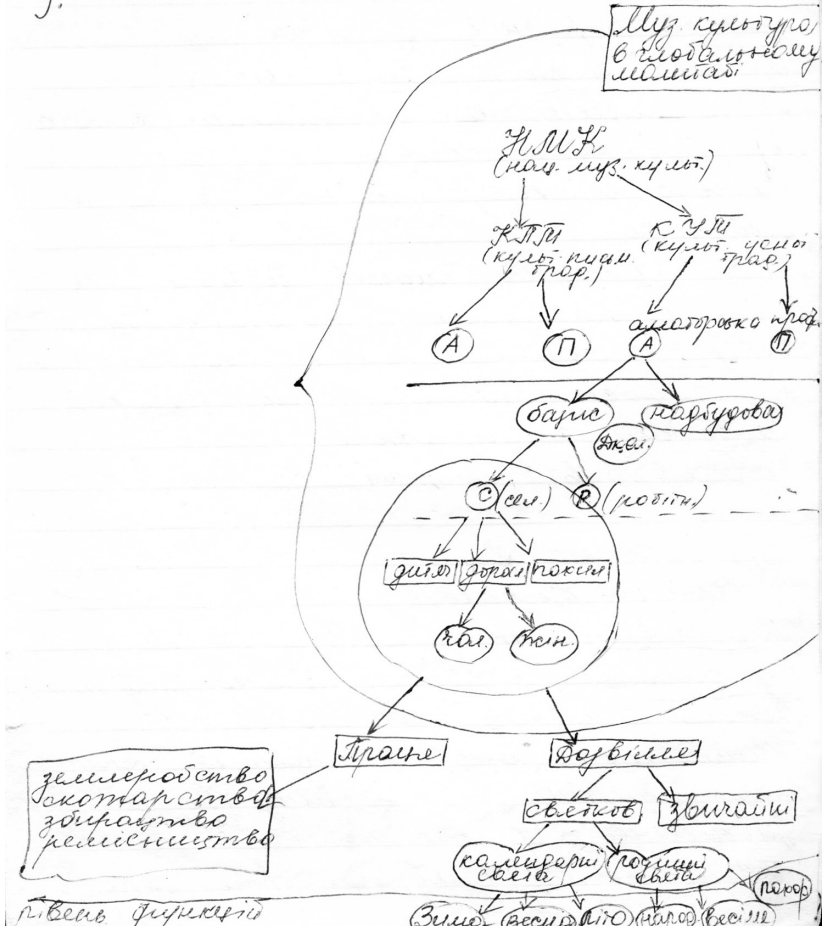 Муз. культура
в глобальному
масштабі
НМК
(нац. муз. культ.)
КПТ
(культ. писм.
трад.)
КУТ
(культ. усної
трад.)
аматорська проф.
А
П
А
П
базис
надбудова
С (сел.)
Р (робітн.)
дитяч
доросл
похил
чол.
жін.
Праця
Дозвілля
землеробство
скотарство
збирацтво
ремісництво
святков
звичайні
календарні
свята
родинні
свята
похор
рівень функцій
Зима
весна
літо
народ
весілля